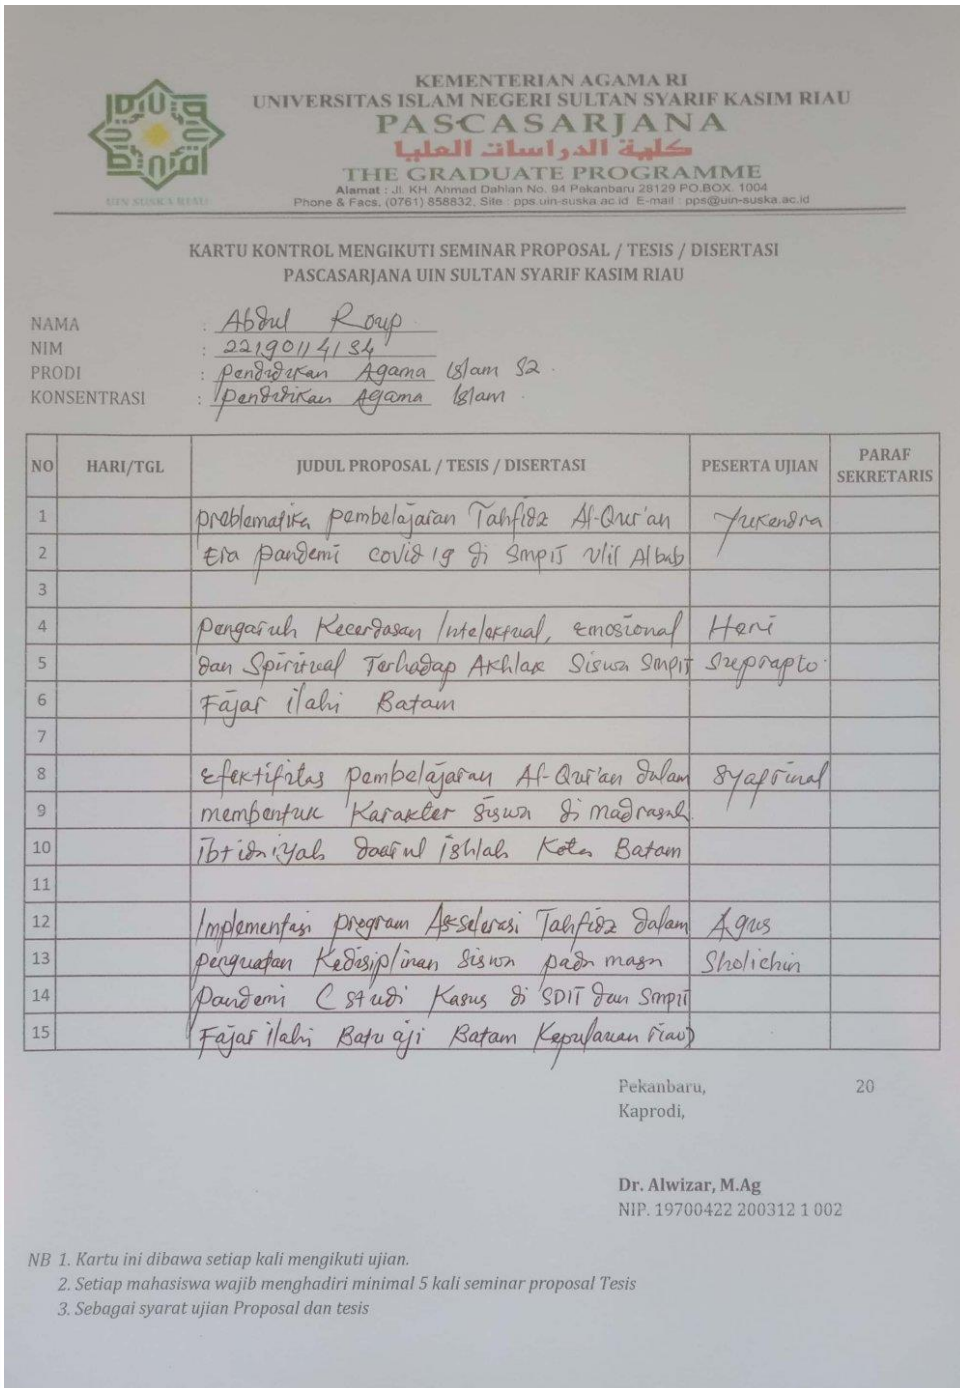 KEMENTERIAN AGAMA RI
UNIVERSITAS ISLAM NEGERI SULTAN SYARIF KASIM RIAU
PASCASARJANA
كلية الدراسات العليا
THE GRADUATE PROGRAMME
Alamat : Jl. KH. Ahmad Dahlan No. 94 Pekanbaru 28129 PO.BOX. 1004
Phone & Facs, (0761) 858832, Site : pps.uin-suska.ac.id E-mail : pps@uin-suska.ac.id
UIN SUSKA RIAU
KARTU KONTROL MENGIKUTI SEMINAR PROPOSAL / TESIS / DISERTASI
PASCASARJANA UIN SULTAN SYARIF KASIM RIAU
NAMA : Abdul Roup
NIM : 22190114134
PRODI : Pendidikan Agama Islam S2.
KONSENTRASI : Pendidikan Agama Islam.
NO HARI/TGL JUDUL PROPOSAL / TESIS / DISERTASI PESERTA UJIAN PARAF SEKRETARIS
1 Problematika pembelajaran Tahfidz Al-Qur'an Yukendra
2 Era pandemi covid 19 di Smpit Ulil Albab
3
4 Pengaruh Kecerdasan Intelektual, Emosional Heri
5 dan Spiritual Terhadap Akhlak Siswa Smpit Suprapto
6 Fajar ilahi Batam
7
8 Efektifitas pembelajaran Al-Qur'an dalam Syafrinal
9 membentuk Karakter siswa di madrasah
10 ibtidaiyah daarul ishlah Kota Batam
11
12 Implementasi program Akselerasi Tahfidz dalam Agus
13 penguatan Kedisiplinan siswa pada masa Sholichin
14 Pandemi (Studi Kasus di SDIT dan Smpit
15 Fajar ilahi Batu aji Batam Kepulauan riau)
Pekanbaru, 20
Kaprodi,
Dr. Alwizar, M.Ag
NIP. 19700422 200312 1 002
NB 1. Kartu ini dibawa setiap kali mengikuti ujian.
2. Setiap mahasiswa wajib menghadiri minimal 5 kali seminar proposal Tesis
3. Sebagai syarat ujian Proposal dan tesis